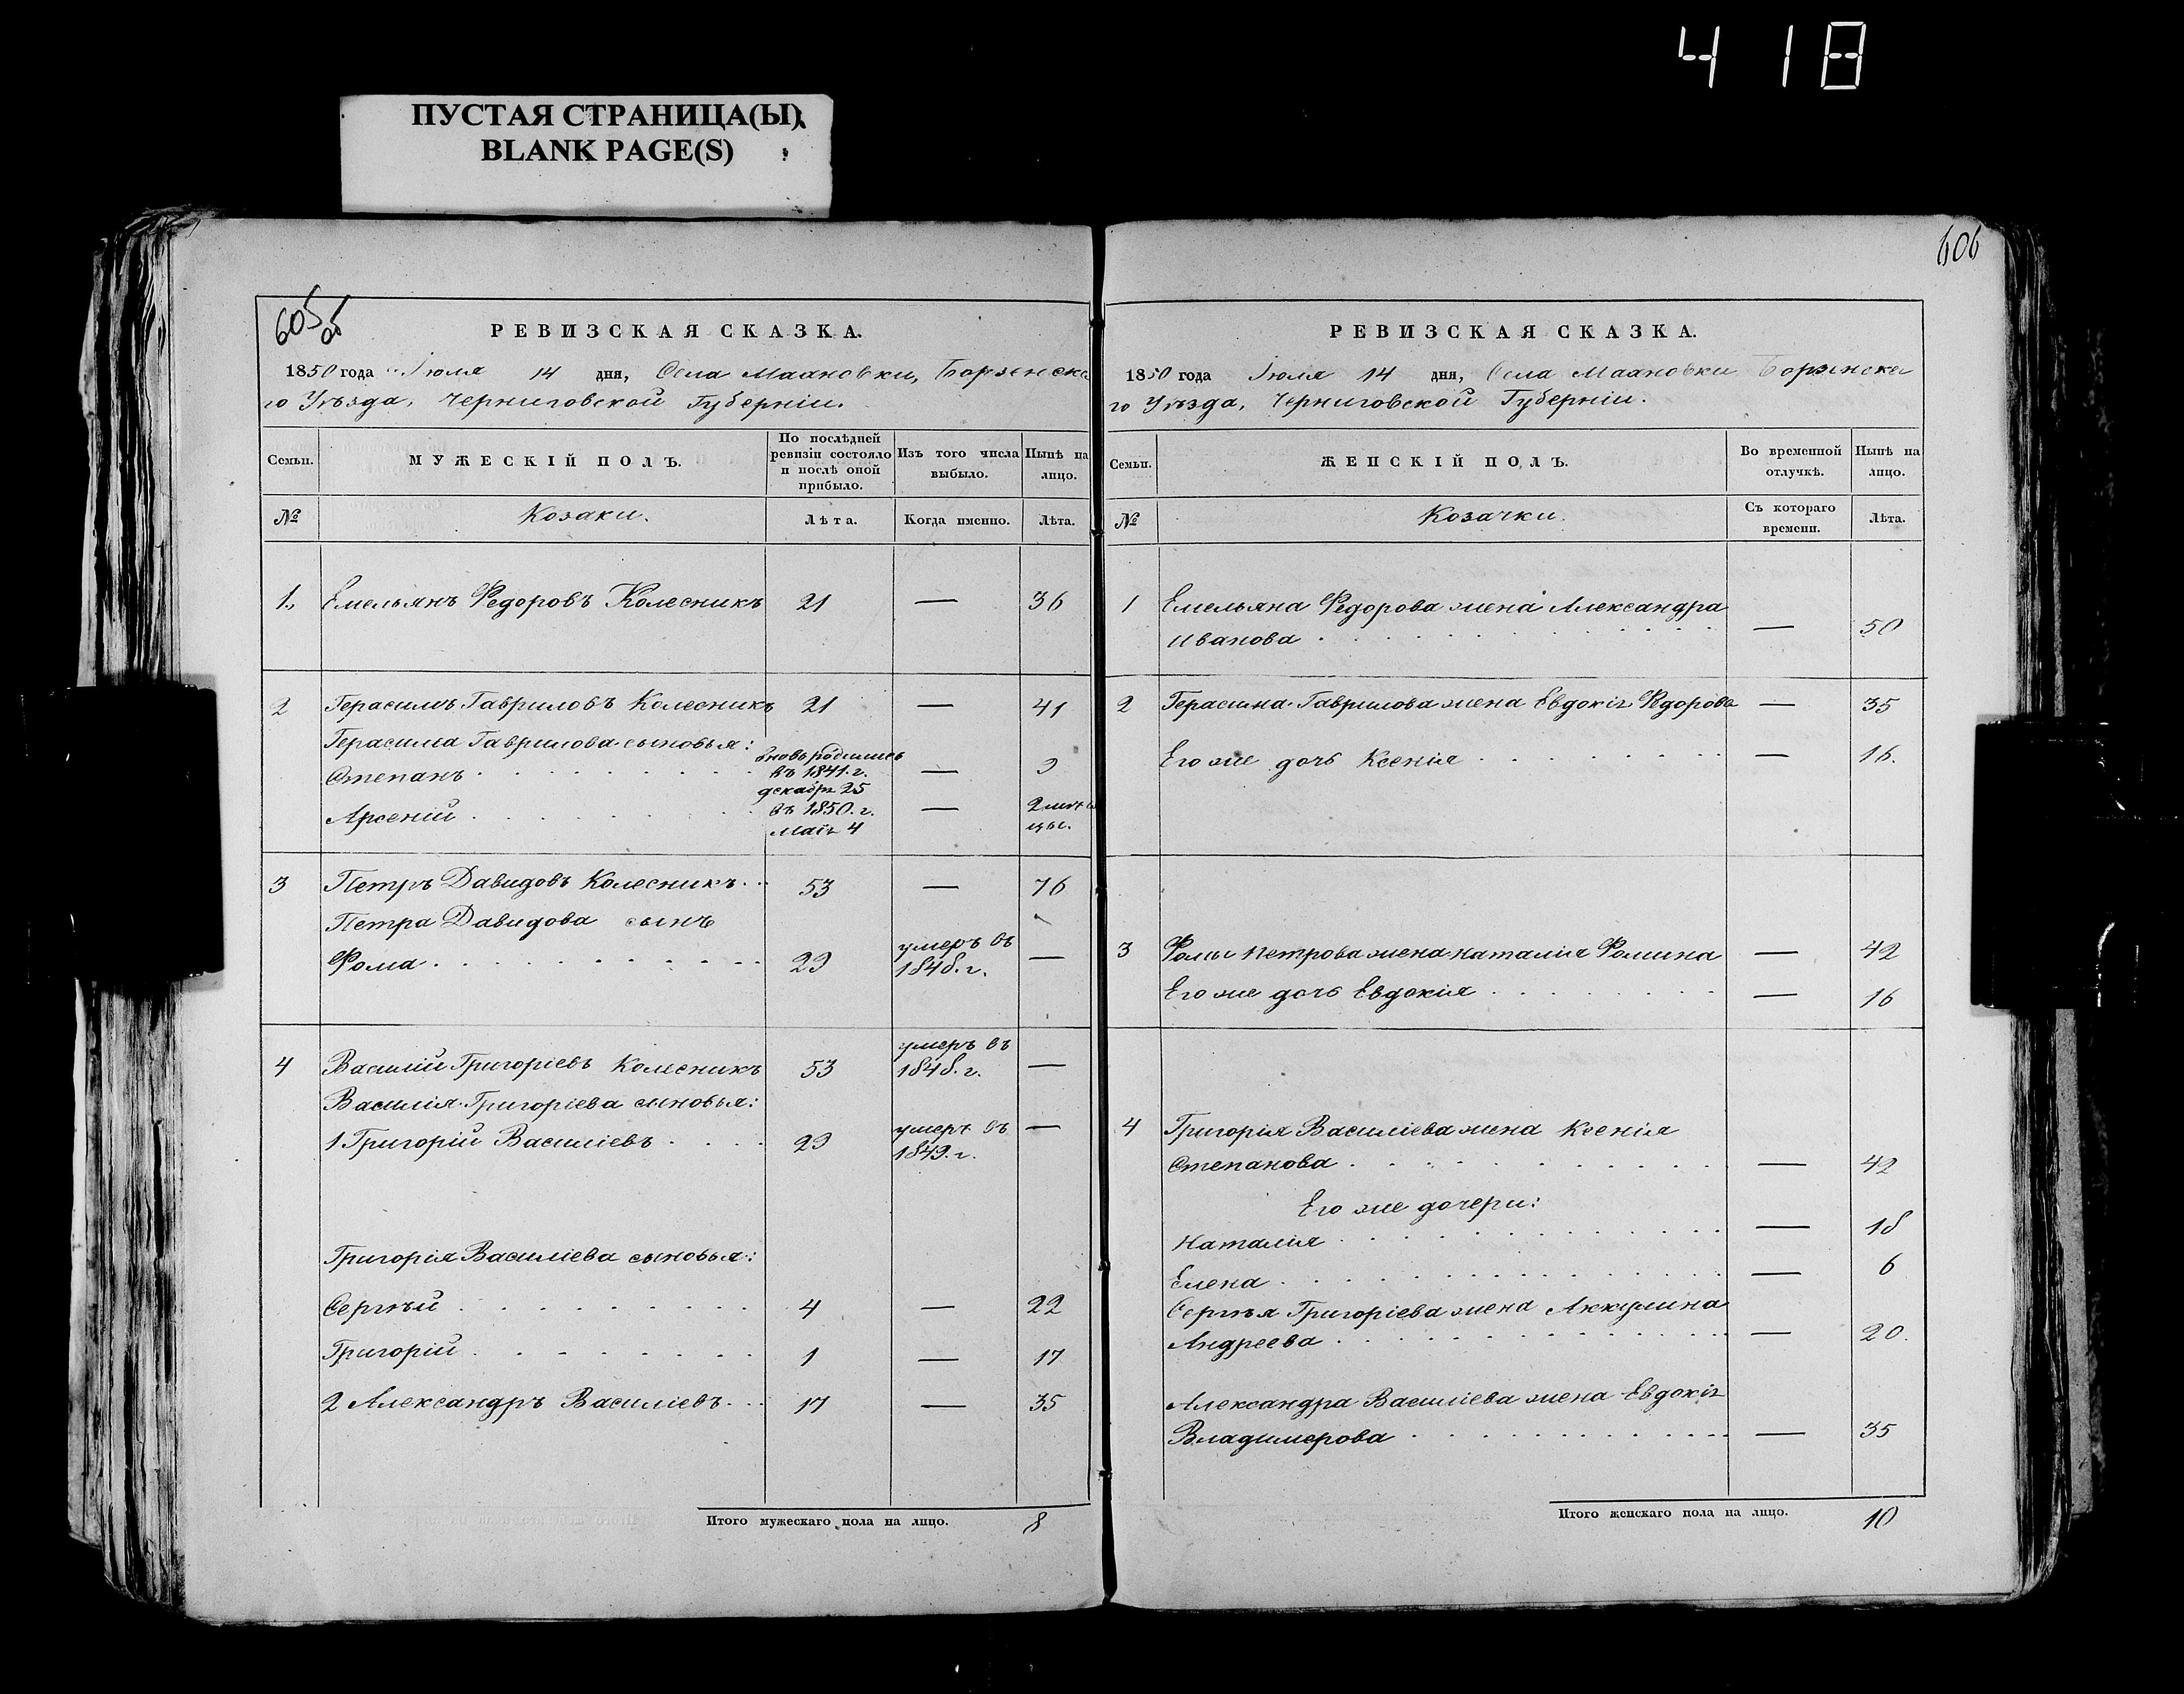 418
ПУСТАЯ СТРАНИЦА(Ы)
BLANK PAGE(S)
605 об
РЕВИЗСКАЯ СКАЗКА.
1850 года Іюля 14 дня, Села Маановки, Борзенска
го Уѣзда, Черниговской Губерніи.
Семьи. МУЖЕСКІЙ ПОЛЪ. По послѣдней ревизіи состояло и послѣ оной прибыло. Изъ того числа выбыло. Нынѣ на лицо.
№ Козаки. Лѣта. Когда именно. Лѣта.
1. Емельянъ Федоровъ Колесникъ 21 — 36
2 Герасимъ Гавриловъ Колесникъ 21 — 41
Герасима Гаврилова сыновья:
Степанъ вновь родились въ 1841. г. декабря 25 — 9
Арсеній въ 1850. г. Маія 4 — 2 мѣсяцы.
3 Петръ Давидовъ Колесникъ 53 — 76
Петра Давидова сынъ
Фома 29 умеръ въ 1848. г. —
4 Василій Григоріевъ Колесникъ 53 умеръ въ 1848. г. —
Василія Григоріева сыновья:
1 Григорій Василіевъ 29 умеръ въ 1849. г. —
Григорія Василіева сыновья:
Сергѣй 4 — 22
Григорій 1 — 17
2 Александръ Василіевъ 17 — 35
Итого мужескаго пола на лицо. 8
606
РЕВИЗСКАЯ СКАЗКА.
1850 года Іюля 14 дня, Села Маановки Борзенска
го Уѣзда, Черниговской Губерніи.
Семьи. ЖЕНСКІЙ ПОЛЪ. Во временной отлучкѣ. Нынѣ на лицо.
№ Козачки. Съ котораго времени. Лѣта.
1 Емельяна Федорова жена Александра
Иванова — 50
2 Герасима Гаврилова жена Евдокія Федорова — 35
Его же дочь Ксенія — 16.
3 Фомы Петрова жена Наталія Фомина — 42
Его же дочь Евдокія — 16
4 Григорія Василіева жена Ксенія
Степанова — 42
Его же дочери:
Наталія — 18
Елена — 6
Сергѣя Григоріева жена Аккулина
Андреева — 20.
Александра Василіева жена Евдокія
Владимерова — 35
Итого женскаго пола на лицо. 10